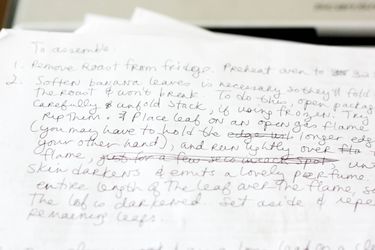 To assemble:
1. Remove Roast from fridge. Preheat oven to
2. Soften banana leaves is necessary so they'll fold
the roast & won't break. To do this, open packag
Carefully & unfold stack, if using frozen. Try
rip them. & Place leaf on an open gas flame
(you may have to hold the edges w/ longer edg
your other hand), and run lightly over fla
flame, just for a few secs each spot
skin darkens & emits a lovely perfume.
entire length of the leaf over the flame, s
the lot is darkened. Set aside & repe
remaining leaves.